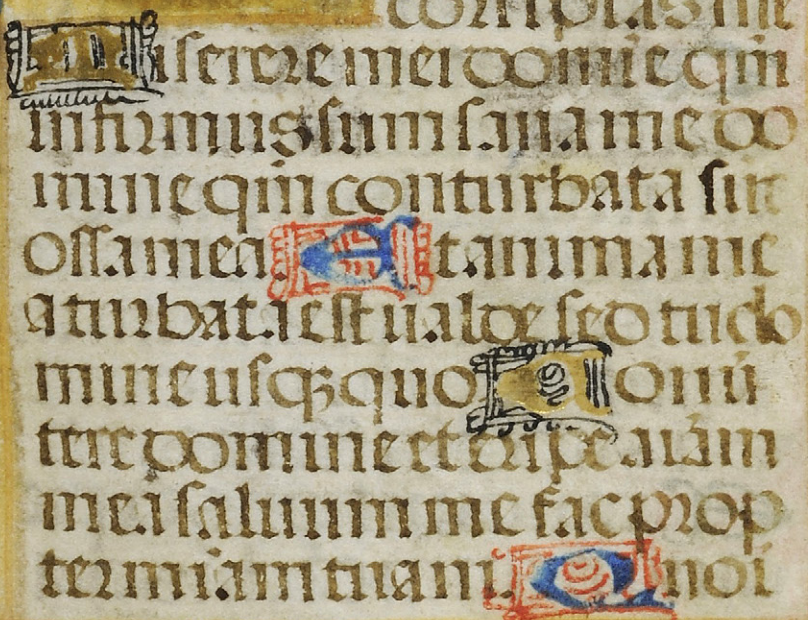 corripias me
Miserere mei domie qm
infirmus sum sana me do
mine qm conturbata sūt
ossa mea. Et anima me
a turbata est ualde sed tu do
mine usqꝫ quo Conū
tere domine et eripe aīam
mea saluum me fac prop
ter miam tuam. Qnoi